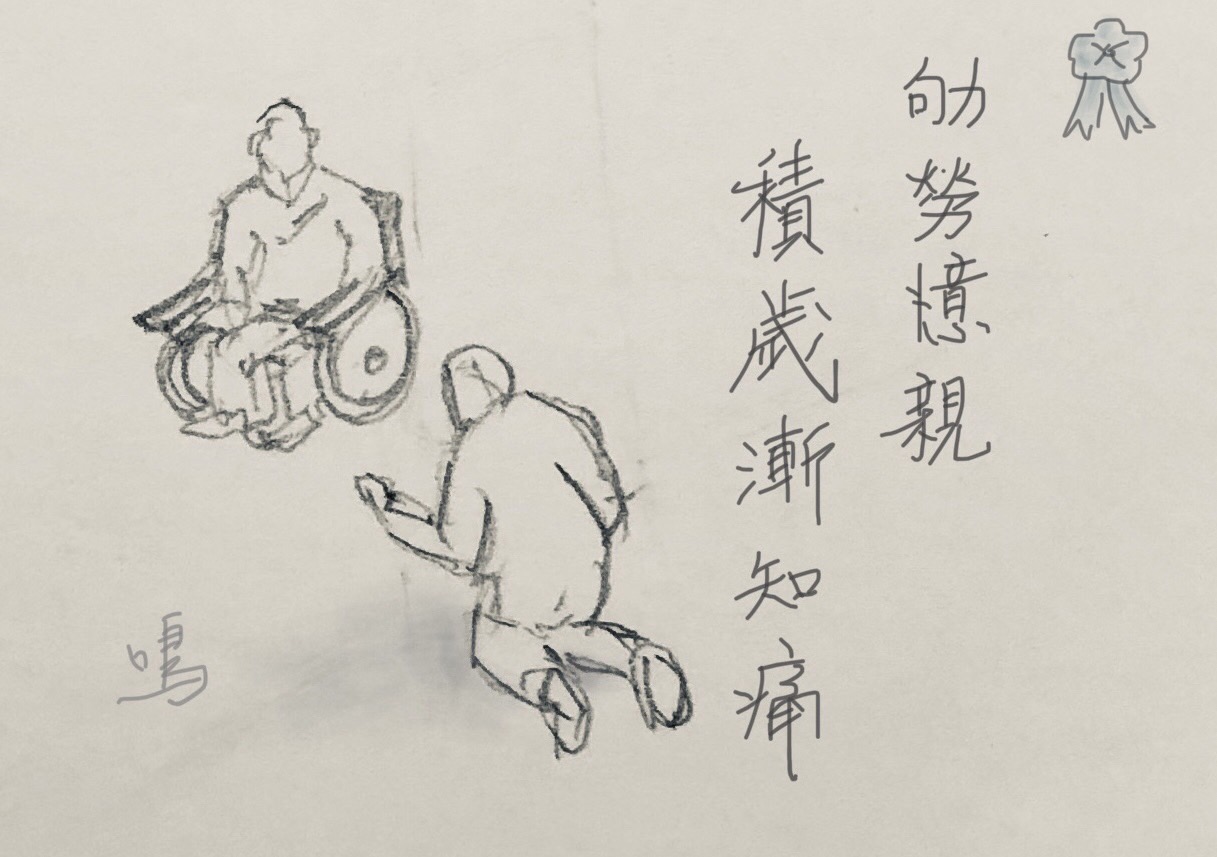 劬勞憶親
積歲漸知痛
鳴